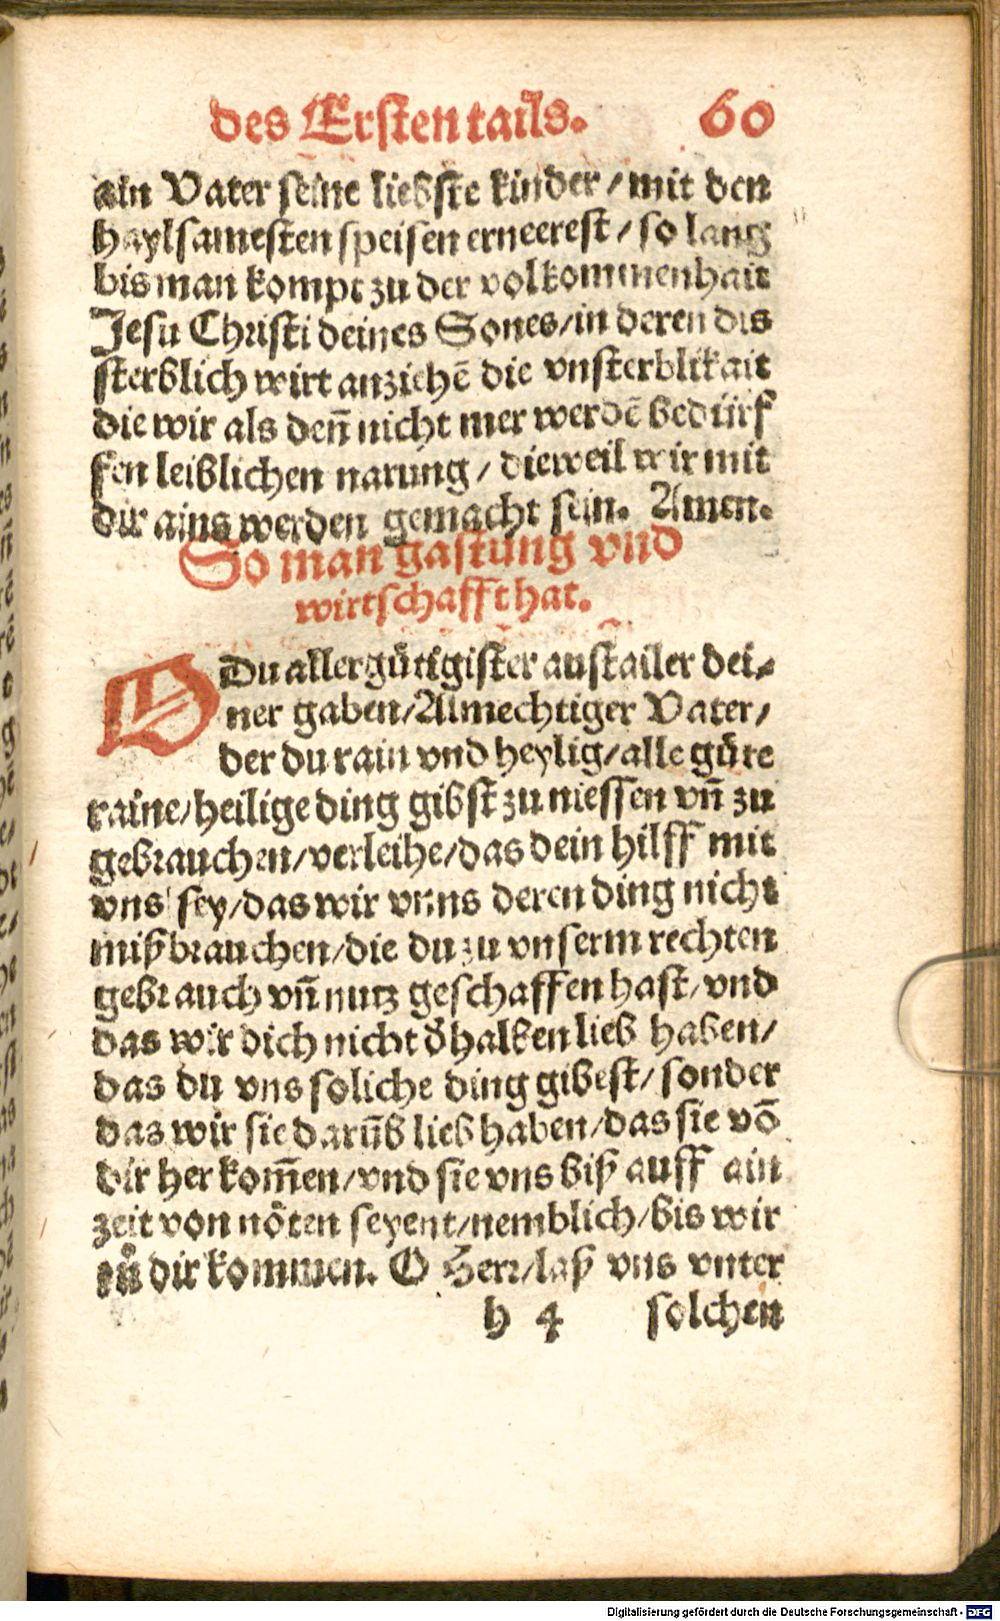 des Ersten tails. 60
ain Vater seine liebste kinder / mit den
haylsamesten speisen erneerest / so lang
bis man kompt zu der volkommenhait
Jesu Christi deines Sones / in deren dis
sterblich wirt anziehē die vnsterblikait
die wir als deñ nicht mer werdē bedürf
fen leiblichen narung / dieweil wir mit
dir ains werden gemacht sein. Amen.
So man gastung vnd
wirtschafft hat.
O Du aller gütigister austailer dei⸗
ner gaben / Almechtiger Vater /
der du rain vnd heylig / alle gůte
raine / heilige ding gibst zu niessen vñ zu
gebrauchen / verleihe / das dein hilff mit
vns sey / das wir vnns deren ding nicht
mißbrauchen / die du zu vnserm rechten
gebrauch vñ nutz geschaffen hast / vnd
das wir dich nicht ð halben lieb haben /
das du vns soliche ding gibest / sonder
das wir sie darūb lieb haben / das sie vō
dir her kom̄en / vnd sie vns biß auff ain
zeit von nöten seyent / nemblich / bis wir
zů dir kommen. O Herr / laß vns vnter
h 4 solchen
Digitalisierung gefördert durch die Deutsche Forschungsgemeinschaft - DFG